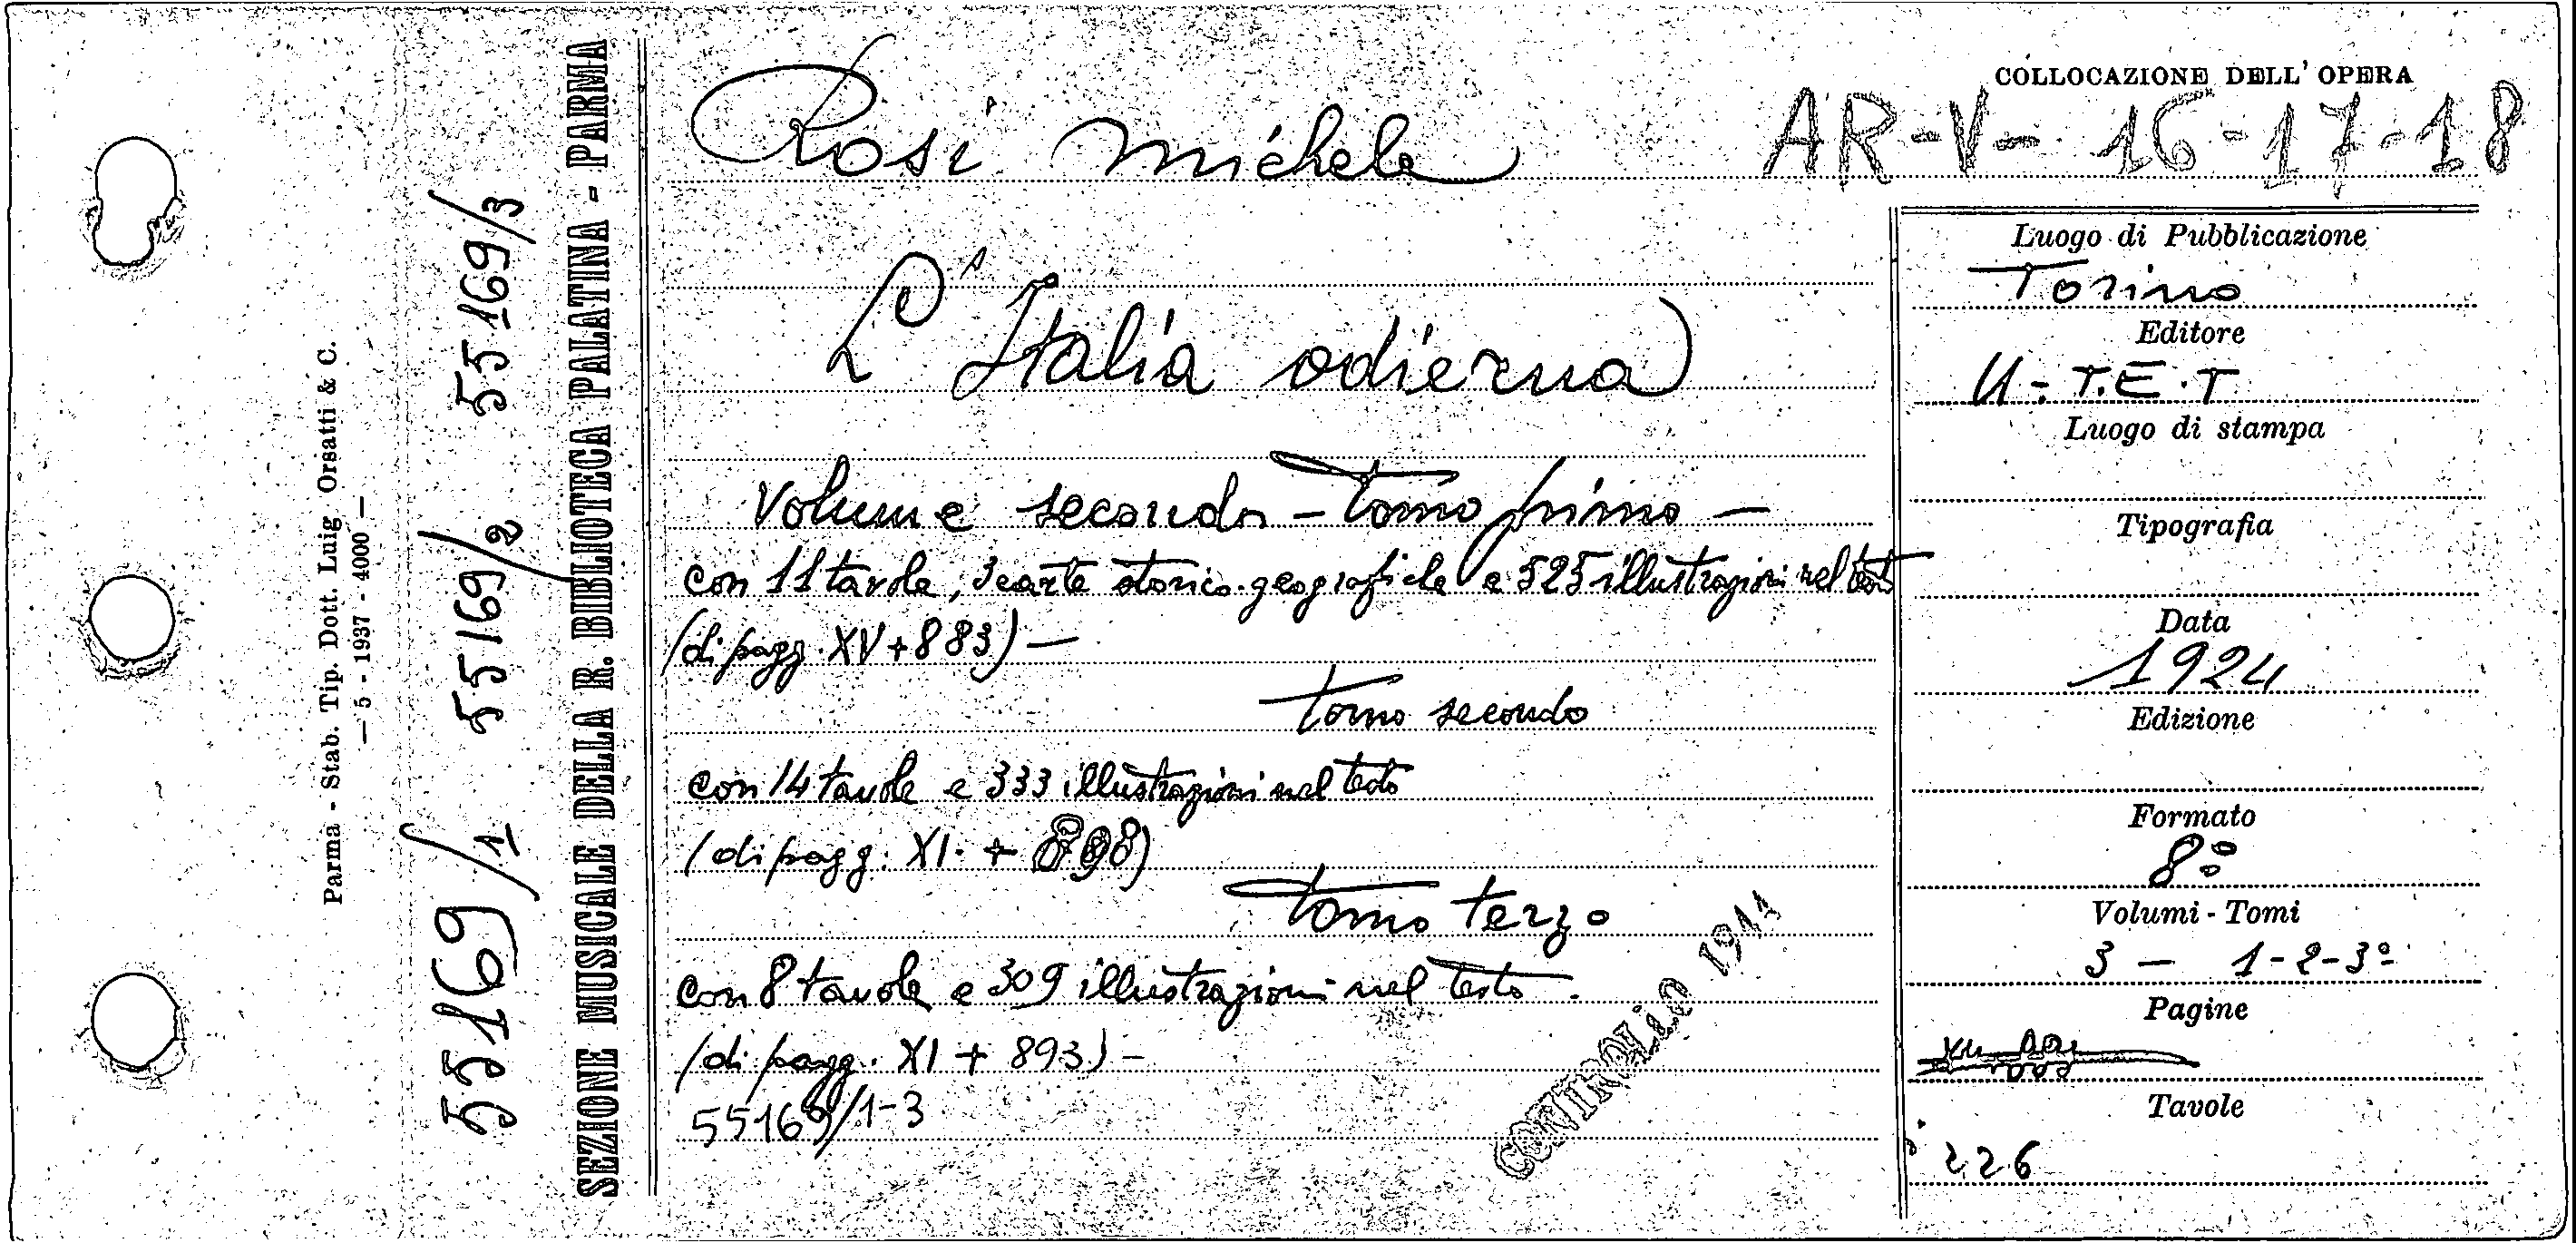 Parma - Stab. Tip. Dott. Luig Orsatti & C.
— 5 - 1937 - 4000 —
55169/1 55169/2 55169/3
SEZIONE MUSICALE DELLA R. BIBLIOTECA PALATINA - PARMA
Rosi Michele
L'Italia odierna
Volume secondo - tomo primo —
con 11 tavole, 3 carte storico-geografiche e 525 illustrazioni nel testo
(di pagg. XV + 883) —
tomo secondo
con 14 tavole e 333 illustrazioni nel testo
(di pagg. XI. + 898)
tomo terzo
con 8 tavole e 309 illustrazioni nel testo.
(di pagg. XI + 893) -
55169/1-3
CONTROLLO 1944
COLLOCAZIONE DELL'OPERA
AR-V- 16-17-18
Luogo di Pubblicazione
Torino
Editore
U. T. E. T
Luogo di stampa
Tipografia
Data
1924
Edizione
Formato
8º
Volumi - Tomi
3 — 1-2-3º
Pagine
Tavole
226